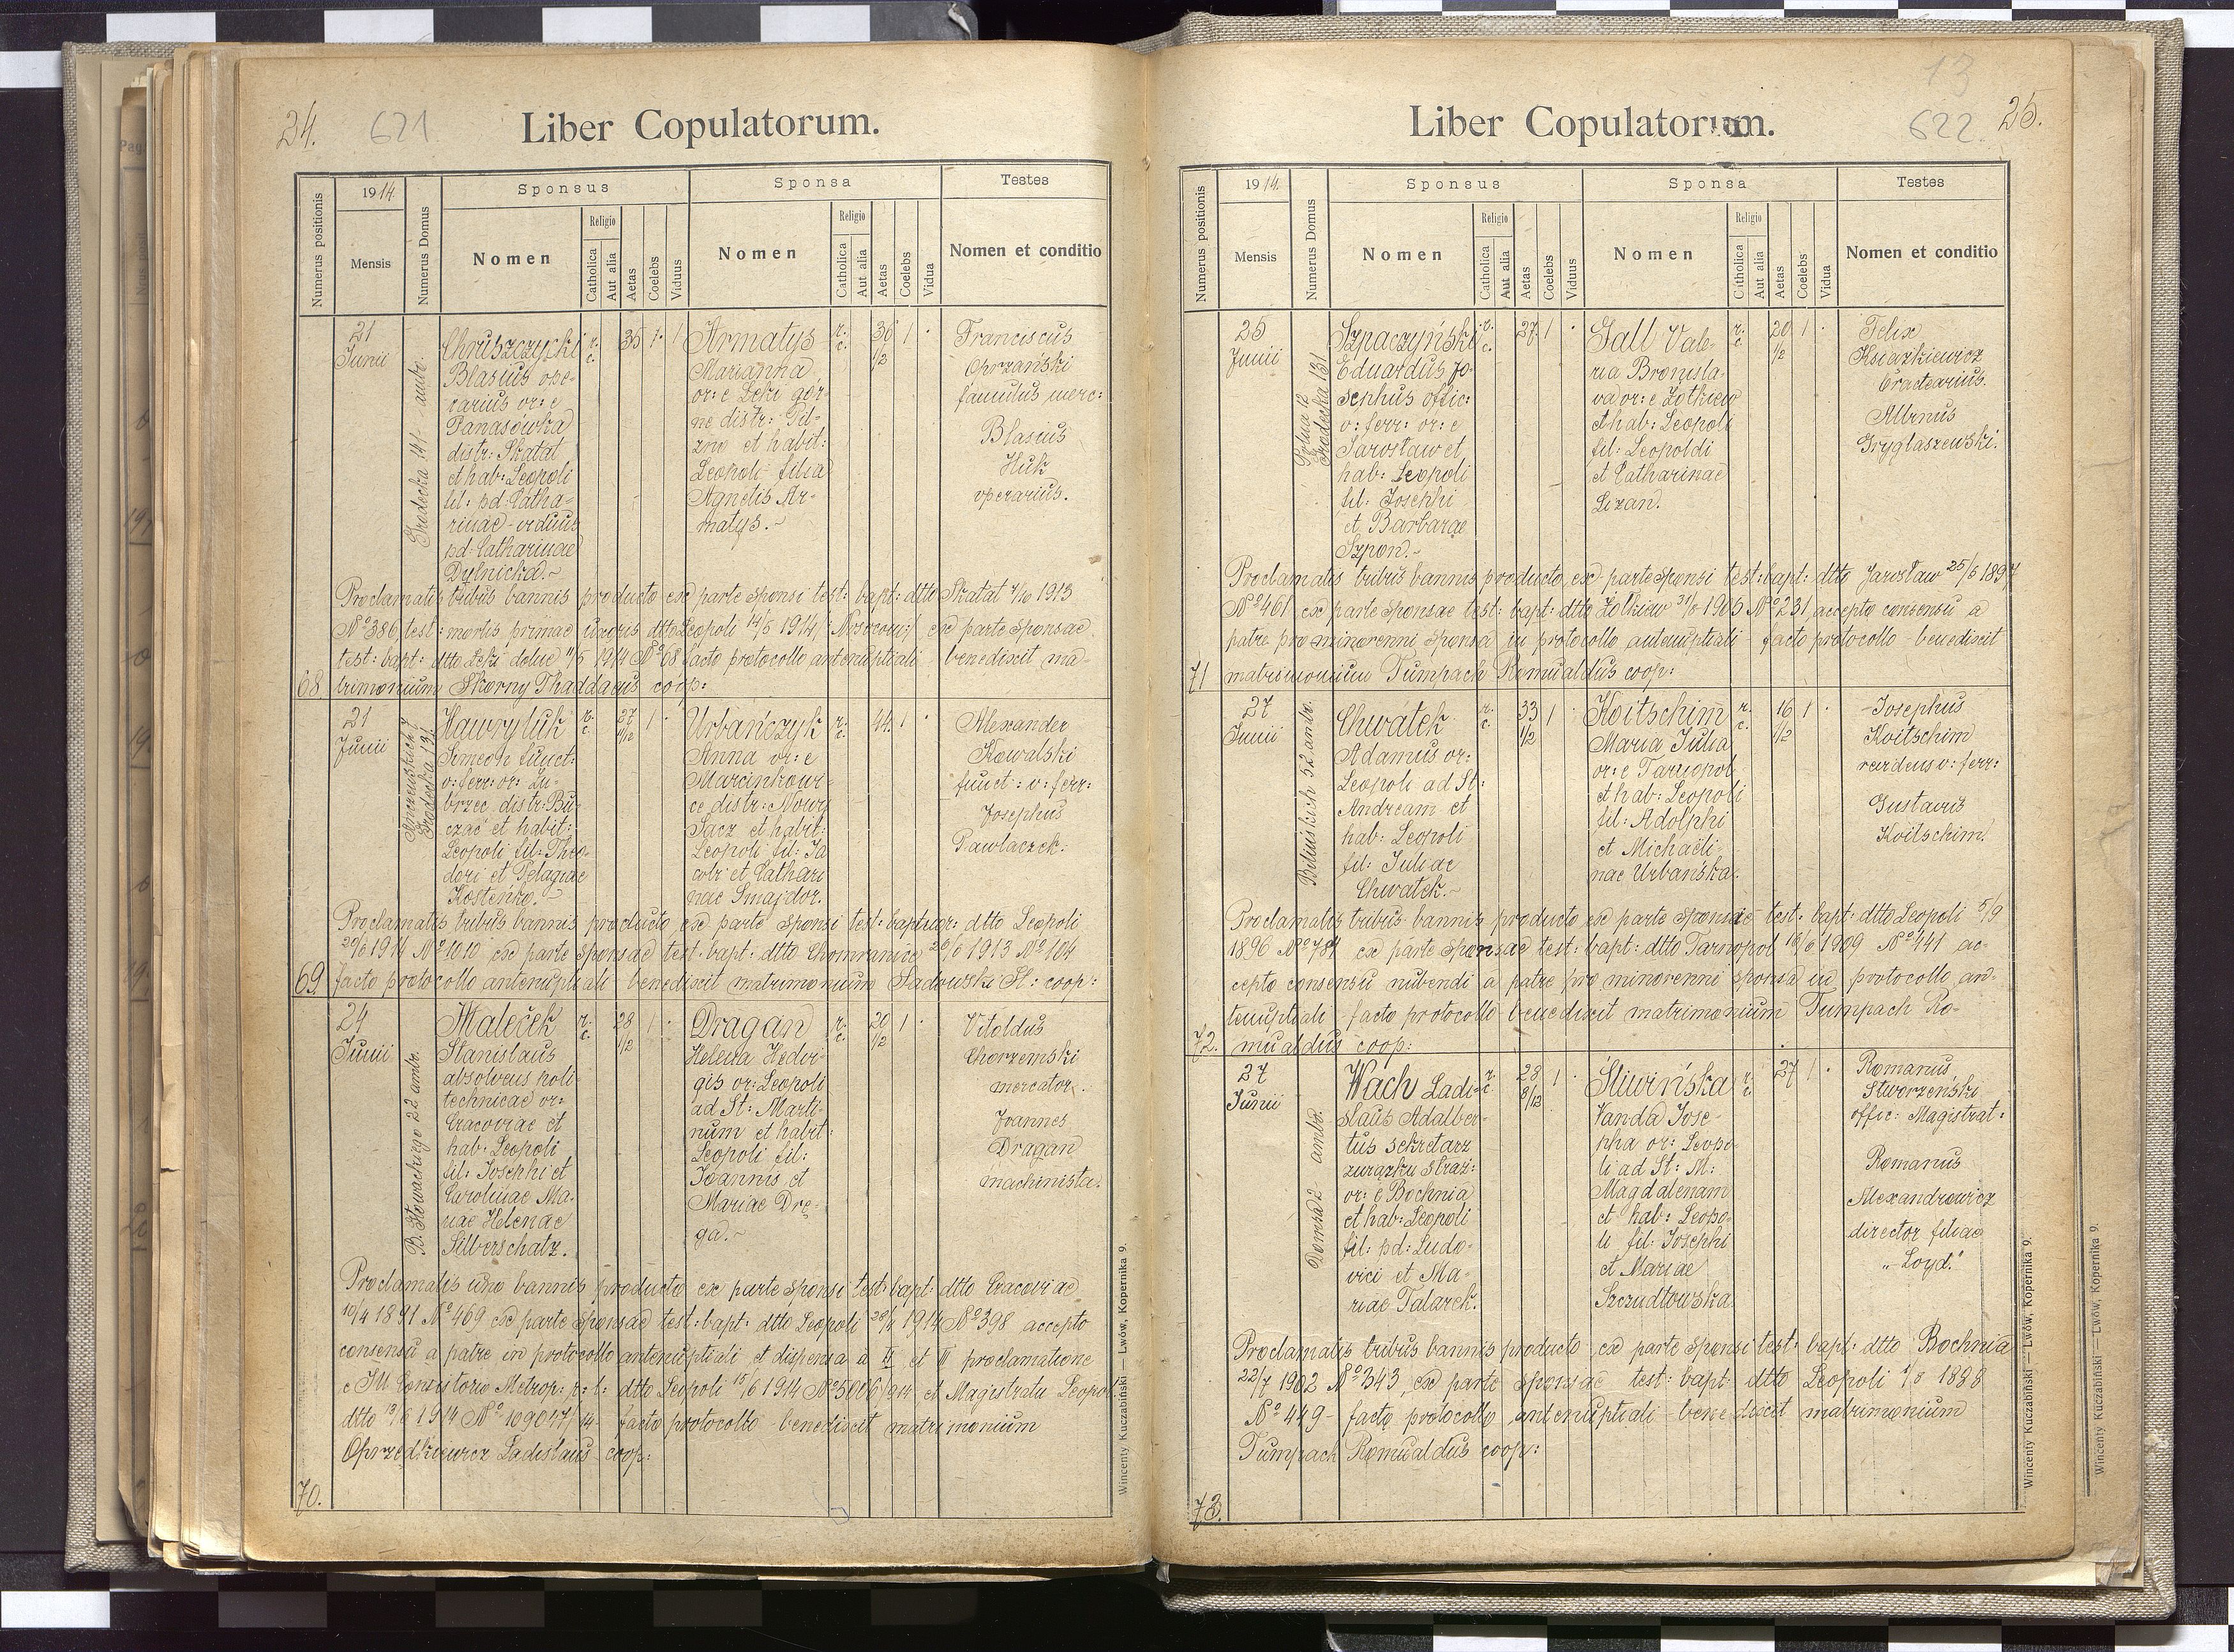 24.
621
Liber Copulatorum.
Numerus positionis
1914.
Mensis
Numerus Domus
Sponsus
Nomen
Religio
Catholica
Aut alia
Aetas
Coelebs
Viduus
Sponsa
Nomen
Religio
Catholica
Aut alia
Aetas
Coelebs
Vidua
Testes
Nomen et conditio
68
21
Junii
Gródecka 141 ambo.
Chruszczycki
Blasius ope-
rarius or: e
Panasówka
distr: Skałat
et hab: Leopoli
fil: pd: Catha-
rinae - viduus
pd: Catharinae
Dylnicka.~
r. c.
35
1
Armatys
Marianna
or: e Łęki gór-
ne distr: Pil-
zno et habit:
Leopoli filia
Agnetis Ar-
matys.~
r. c.
30 1/2
1
Franciscus
Chrzański
famulus merc:
Blasius
Huk
operarius.
Proclamatis tribus bannis producto ex parte sponsi test: bapt: dtto Skałat 7/10 1913
No 386, test: mortis primae uxoris dtto Leopoli 14/5 1914 ex parte sponsae
test: bapt: dtto Łęki dolne 11/5 1914 No 68 facto protocollo antenuptiali benedixit ma-
trimonium Skorny Thaddaeus coop:
69.
21
Junii
Gródecka 131
Hawryluk
Simeon funct:
v: ferr: or: Zu-
brzec distr: Bu-
czacz et habit:
Leopoli fil: Theo-
dori et Pelagiae
Kostenko.~
r. c.
27 1/12
1
Urbańczyk
Anna or: e
Marcinkowi-
ce distr: Nowy
Sącz et habit:
Leopoli fil: Ja
cobi et Cathari
nae Smajdor.
r. c.
44
1
Alexander
Kowalski
funct: v: ferr:
Josephus
Pawlaczek.
Proclamatis tribus bannis producto ex parte sponsi test: bapt: gr: dtto Leopoli
20/6 1914 No 1010, ex parte sponsae test: bapt: dtto Chomranice 26/6 1913 No 104
facto protocollo antenuptiali benedixit matrimonium Sadowski St: coop:
70.
24
Junii
B. Słowackiego 22 ambo.
Maleček
Stanislaus
absolvens poli-
technicae or:
Cracoviae et
hab: Leopoli
fil: Josephi et
Carolinae Ma-
riae Helenae
Silberschatz.
r. c.
28 1/2
1
Dragan
Helena Hedvi-
gis or: Leopoli
ad St: Marti-
num et habit:
Leopoli fil:
Joannis et
Mariae Drę-
ga.~
r. c.
20 1/2
1
Vitoldus
Chorzemski
mercator.
Joannes
Dragan
machinista.
Proclamatis uno bannis producto ex parte sponsi test: bapt: dtto Cracoviae
10/4 1891 No 469 ex parte sponsae test: bapt: dtto Leopoli 28/4 1914 No 398 accepto
consensu a patre in protocollo antenuptiali et dispensa a II et III proclamatione
e Ill Consistorio Metrop: r: l: dtto Leopoli 15/6 1914 No 5006/914, et Magistratu Leopol
dtto 13/6 1914 No 109047/14 - facto protocollo benedixit matrimonium
Oprzędkiewicz Ladislaus coop:
Wincenty Kuczabiński — Lwów, Kopernika 9.
13
622.
25.
Liber Copulatorum.
Numerus positionis
1914.
Mensis
Numerus Domus
Sponsus
Nomen
Religio
Catholica
Aut alia
Aetas
Coelebs
Viduus
Sponsa
Nomen
Religio
Catholica
Aut alia
Aetas
Coelebs
Vidua
Testes
Nomen et conditio
71
25
Junii
Gródecka 131
Szpaczyński
Eduardus Jo-
sephus offic:
v: ferr: or: e
Jarosław et
hab: Leopoli
fil: Josephi
et Barbarae
Szpon.~
r. c.
27
1
Gall Vale-
ria Bronisla-
va or: e Żółkiew
et hab: Leopoli
fil: Leopoldi
et Catharinae
Lizan.
r. c.
20 1/2
1
Felix
Książkiewicz
Albinus
Gryglaszewski.
Proclamatis tribus bannis producto ex parte sponsi test: bapt: dtto Jarosław 25/6 1897
No 461, ex parte sponsae test: bapt: dtto Żółkiew 31/8 1905 No 231, accepto consensu a
patre pro minorenni sponsa in protocollo antenuptiali - facto protocollo - benedixit
matrimonium Tumpach Romualdus coop:
72.
27
Junii
52 ambo.
Chwátek
Adamus or:
Leopoli ad St:
Andream et
hab: Leopoli
fil: Juliae
Chwatek.~
r. c.
33 1/2
1
Koitschim
Maria Julia
or: e Tarnopol
et hab: Leopoli
fil: Adolphi
et Michaeli-
nae Urbańska.
r. c.
16 1/2
1
Josephus
Koitschim
v: ferr:
Gustavus
Koitschim.
Proclamatis tribus bannis producto ex parte sponsi test: bapt: dtto Leopoli 5/9
1896 No 784 ex parte sponsae test: bapt: dtto Tarnopol 16/6 1909 No 441 ac-
cepto consensu nubendi a patre pro minorenni sponsa in protocollo an-
tenuptiali - facto protocollo benedixit matrimonium Tumpach Ro-
mualdus coop:
73.
27
Junii
Domsa 2 ambo.
Wach Ladi-
slaus Adalber-
tus sekretarz
związku straż:
or: e Bochnia
et hab: Leopoli
fil: pd: Ludo-
vici et Ma-
riae Talarek.
r. c.
28 8/12
1
Śliwińska
Vanda Jose-
pha or: Leopo-
li ad St: M:
Magdalenam
et hab: Leopo-
li fil: Josephi
et Mariae
Szczudłowska
r. c.
27
1
Romanus
Stworzeński
offic: Magistrat:
Romanus
Alexandrowicz
director filiae
„Loyd."
Proclamatis tribus bannis producto ex parte sponsi test: bapt: dtto Bochnia
22/7 1902 No 343, ex parte sponsae test: bapt: dtto Leopoli 1/8 1888
No 449 - facto protocollo antenuptiali - benedixit matrimonium
Tumpach Romualdus coop:
Wincenty Kuczabiński — Lwów, Kopernika 9.
Wincenty Kuczabiński — Lwów, Kopernika 9.